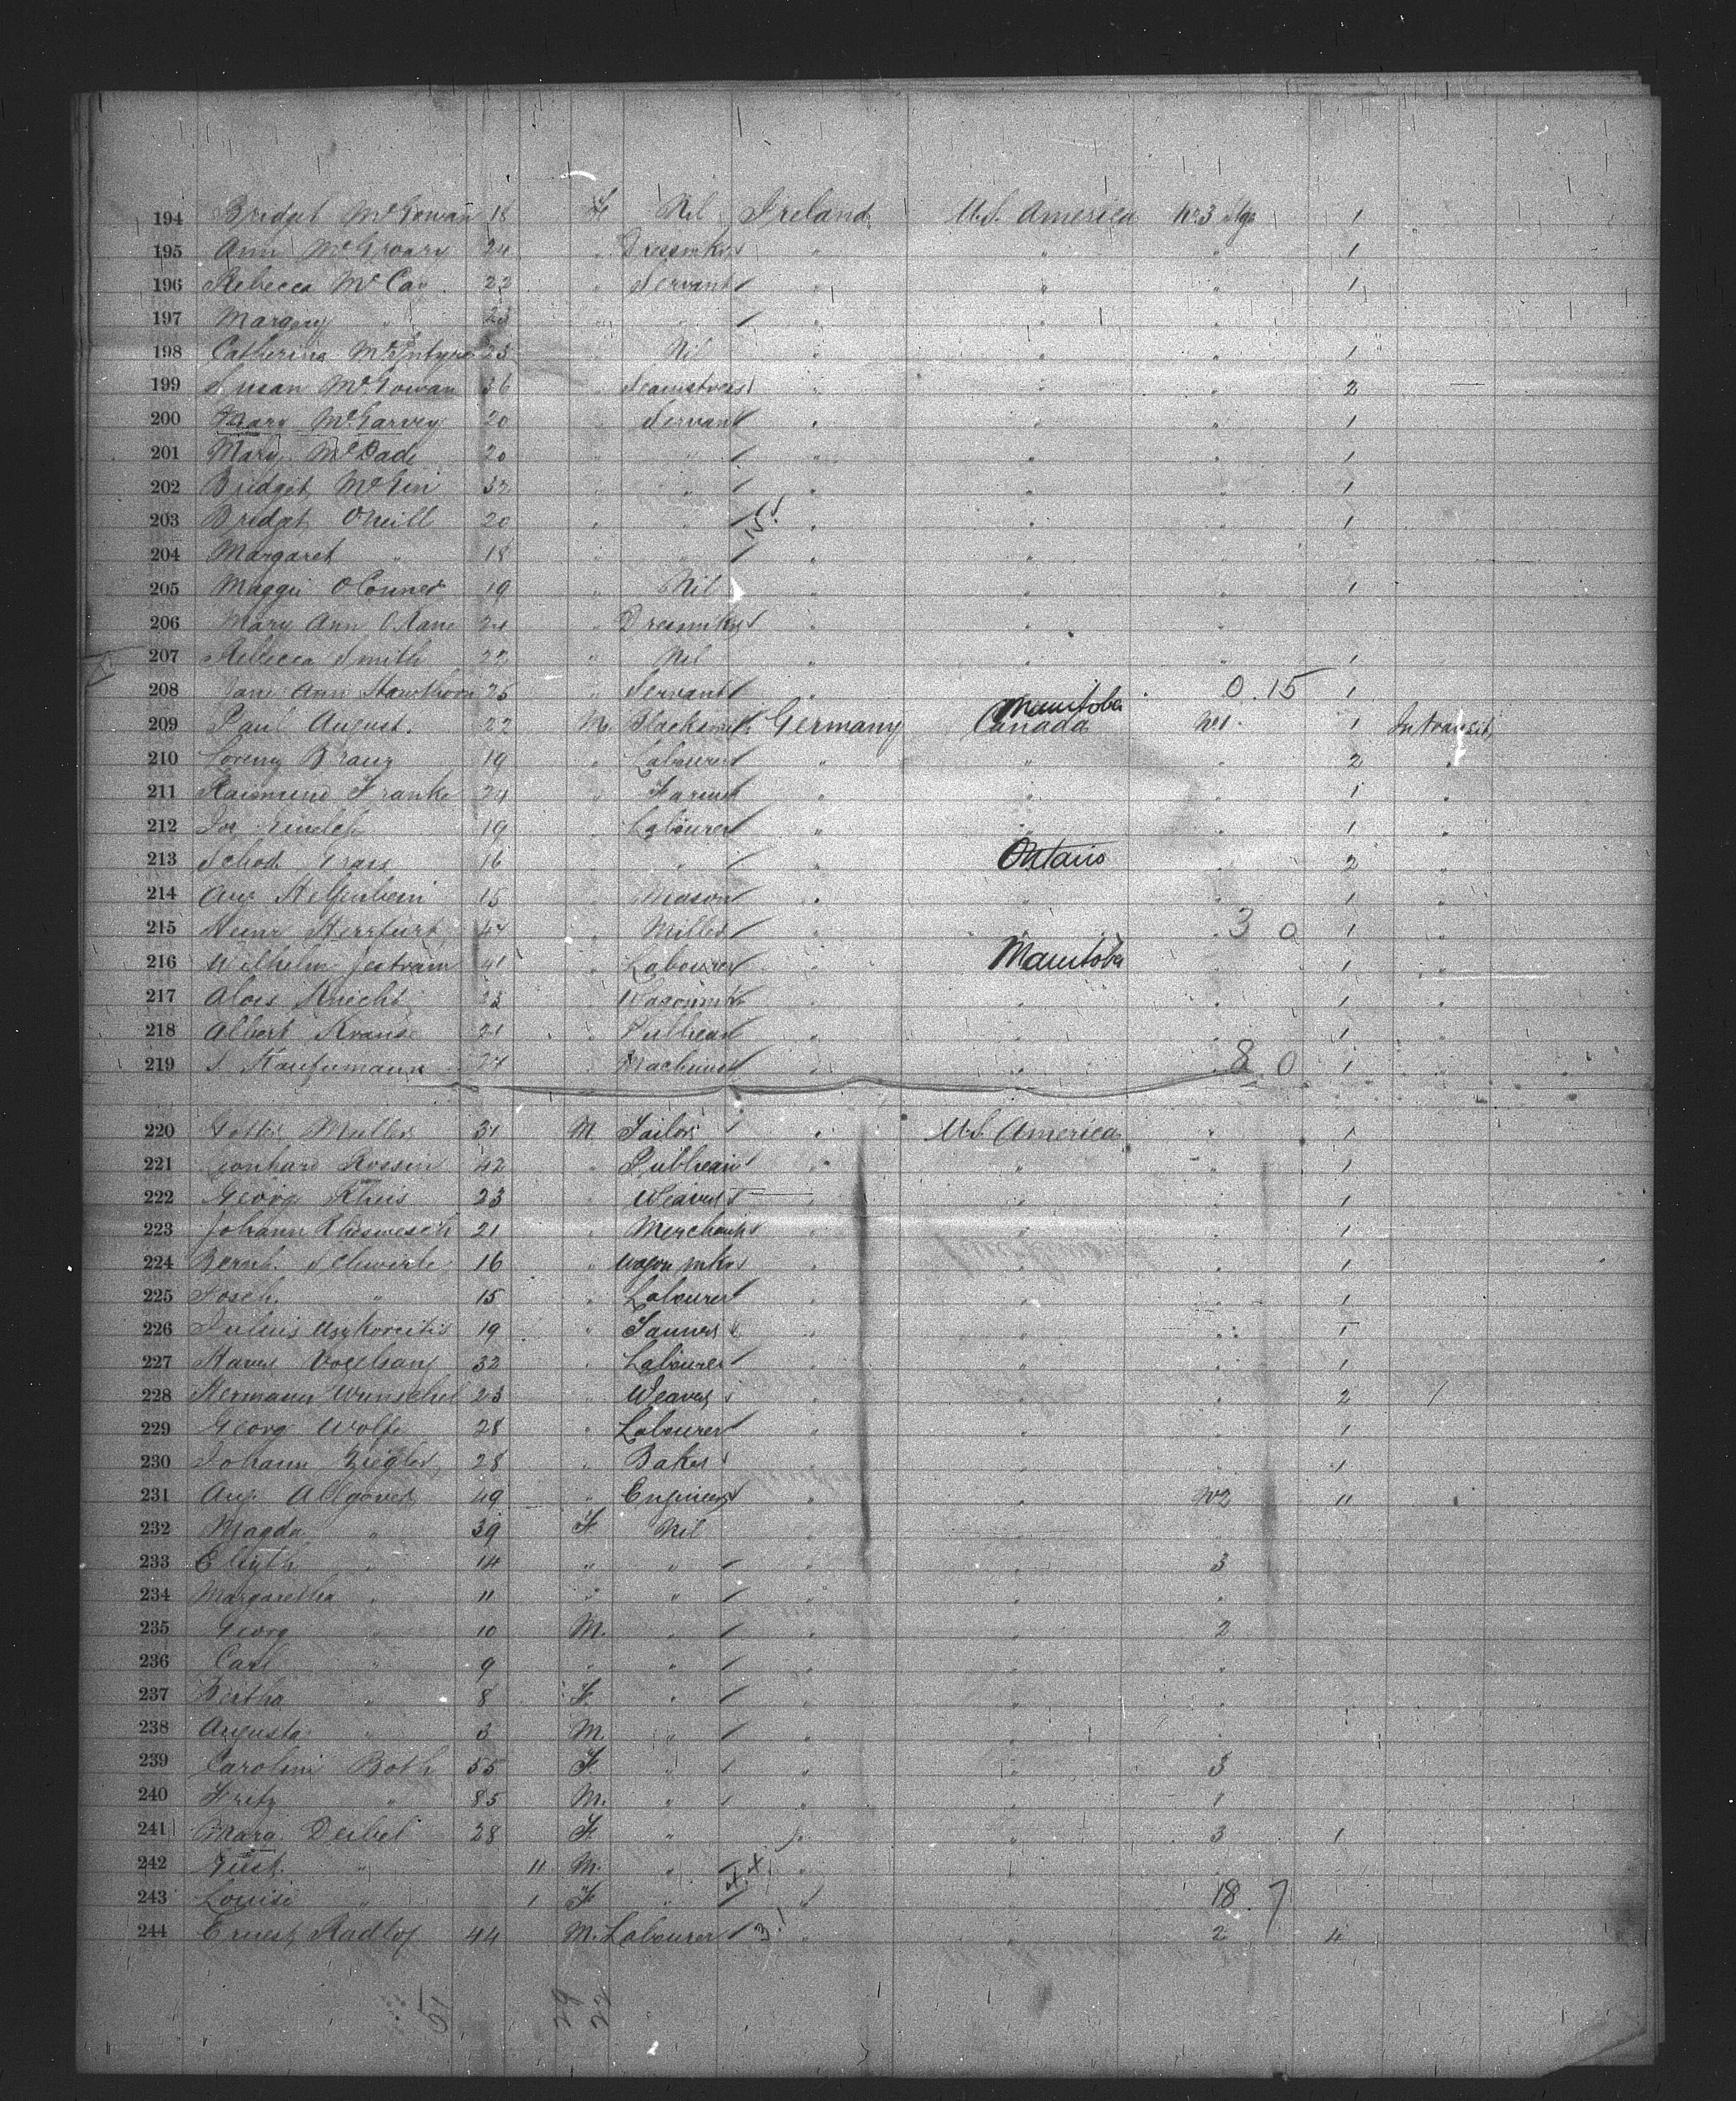 194 Bridget McGowan 18 F Nil Ireland U.S. America No 3 Stge 1
195 Ann McGroary 24 " Dressmkr " " " 1
196 Rebecca McCay 22 " Servant " " " 1
197 Margery " 23 " " " " "
198 Catherine McIntyre 23 " Nil " " " 1
199 Susan McGowan 36 " Seamstress " " " 2
200 Mary McGarvey 20 " Servant " " " 1
201 Mary McDade 20 " " " " " 1
202 Bridget McGin 32 " " " " " 1
203 Bridget ONeill 20 " " " " " 1
204 Margaret " 18 " " " " "
205 Maggie OConner 19 " Nil " " " 1
206 Mary Ann OKane 24 " Dressmkr " " "
207 Rebecca Smith 22 " Nil " " " 1
208 Jane Ann Hawthorn 25 " Servant " " 0.15 1
Manitoba
209 Paul August. 22 M Blacksmith Germany Canada No 1 1 In transit
210 Lorenz Braun 19 " Labourer " " " 2 "
211 Raimund Franke 24 " Farmer " " " 1 "
212 Jos 19 " Labourer " " " 1 "
213 Grass 16 " " " Ontario " 2 "
214 Aug 15 " Mason " " " 1 "
215 Heinr Herrfurt 44 " Miller " " 3 0 1 "
216 Wilhelm Jestram 41 " Labourer " Manitoba " 1 "
217 Alois Knecht 23 " Wagonmkr " " " 1 "
218 Albert Krause 21 " Publican " " " 1 "
219 S Kaufmann 24 " Machinist " " 8 0 1 "
220 Muller 31 M Tailor " U.S. America " 1
221 Leonhard Rossin 42 " Publican " " " 1
222 Georg 23 " Weaver " " " 1
223 Johann 21 " Merchant " " " 1
224 Bernh. 16 " Wagon mkr " " " 1
225 Josef. " 15 " Labourer " " " 1
226 Julius 19 " Tanner " " " 1
227 Vogelsang 32 " Labourer " " " 1
228 Hermann Wunschel 23 " Weaver " " " 2
229 Georg Wolfe 28 " Labourer " " " 1
230 Johann Ziegler 28 " Baker " " " 1
231 Aug. Allgover 49 " Engineer " " No 2 11
232 Magda " 39 F Nil " " "
233 Elizth " 14 " " " " 3
234 Margaretha " 11 " " " " "
235 Georg " 10 M. " " " 2
236 Carl " 9 " " " " "
237 Bertha " 8 F. " " " "
238 Augusta " 3 M. " " " "
239 Caroline Both 55 F. " " " 3
240 Fritz " 85 M. " " " 1
241 Marg Deibel 28 F. " " " 3 1
242 " 11 M. " " " "
243 Louise " 1 F " " " 18 7
244 Ernest Radlof 44 M. Labourer " " 2 4
51 29 22